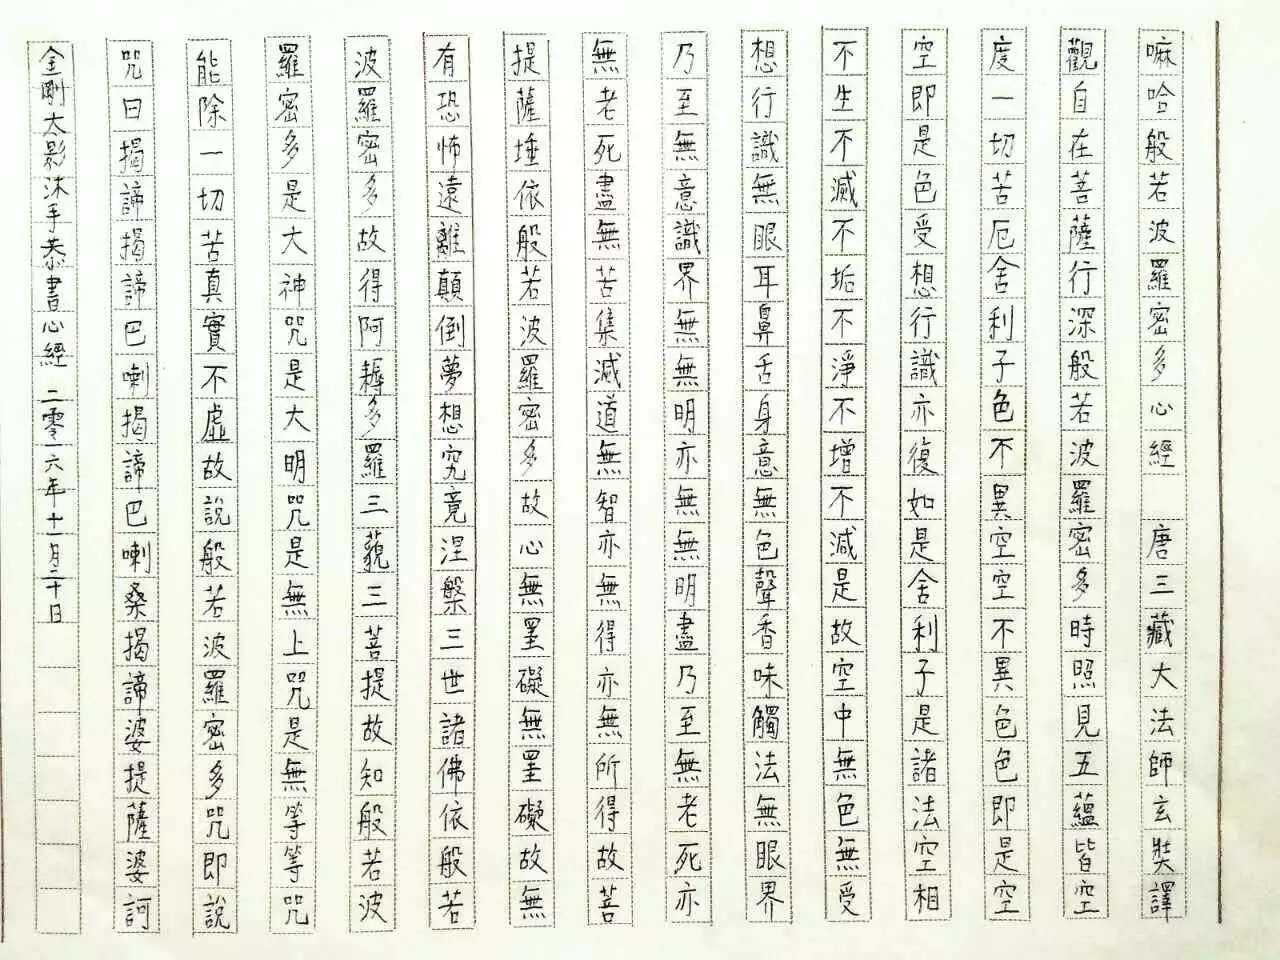 嘛哈般若波羅密多心經　唐三藏大法師玄奘譯
觀自在菩薩行深般若波羅密多時照見五蘊皆空
度一切苦厄舍利子色不異空空不異色色即是空
空即是色受想行識亦復如是舍利子是諸法空相
不生不滅不垢不淨不增不減是故空中無色無受
想行識無眼耳鼻舌身意無色聲香味觸法無眼界
乃至無意識界無無明亦無無明盡乃至無老死亦
無老死盡無苦集滅道無智亦無得亦無所得故菩
提薩埵依般若波羅密多故心無罣礙無罣礙故無
有恐怖遠離顛倒夢想究竟涅槃三世諸佛依般若
波羅密多故得阿耨多羅三藐三菩提故知般若波
羅密多是大神咒是大明咒是無上咒是無等等咒
能除一切苦真實不虛故說般若波羅密多咒即說
咒曰揭諦揭諦巴喇揭諦巴喇桑揭諦婆提薩婆訶
金剛太影沐手恭書心經 二零一六年十一月二十日